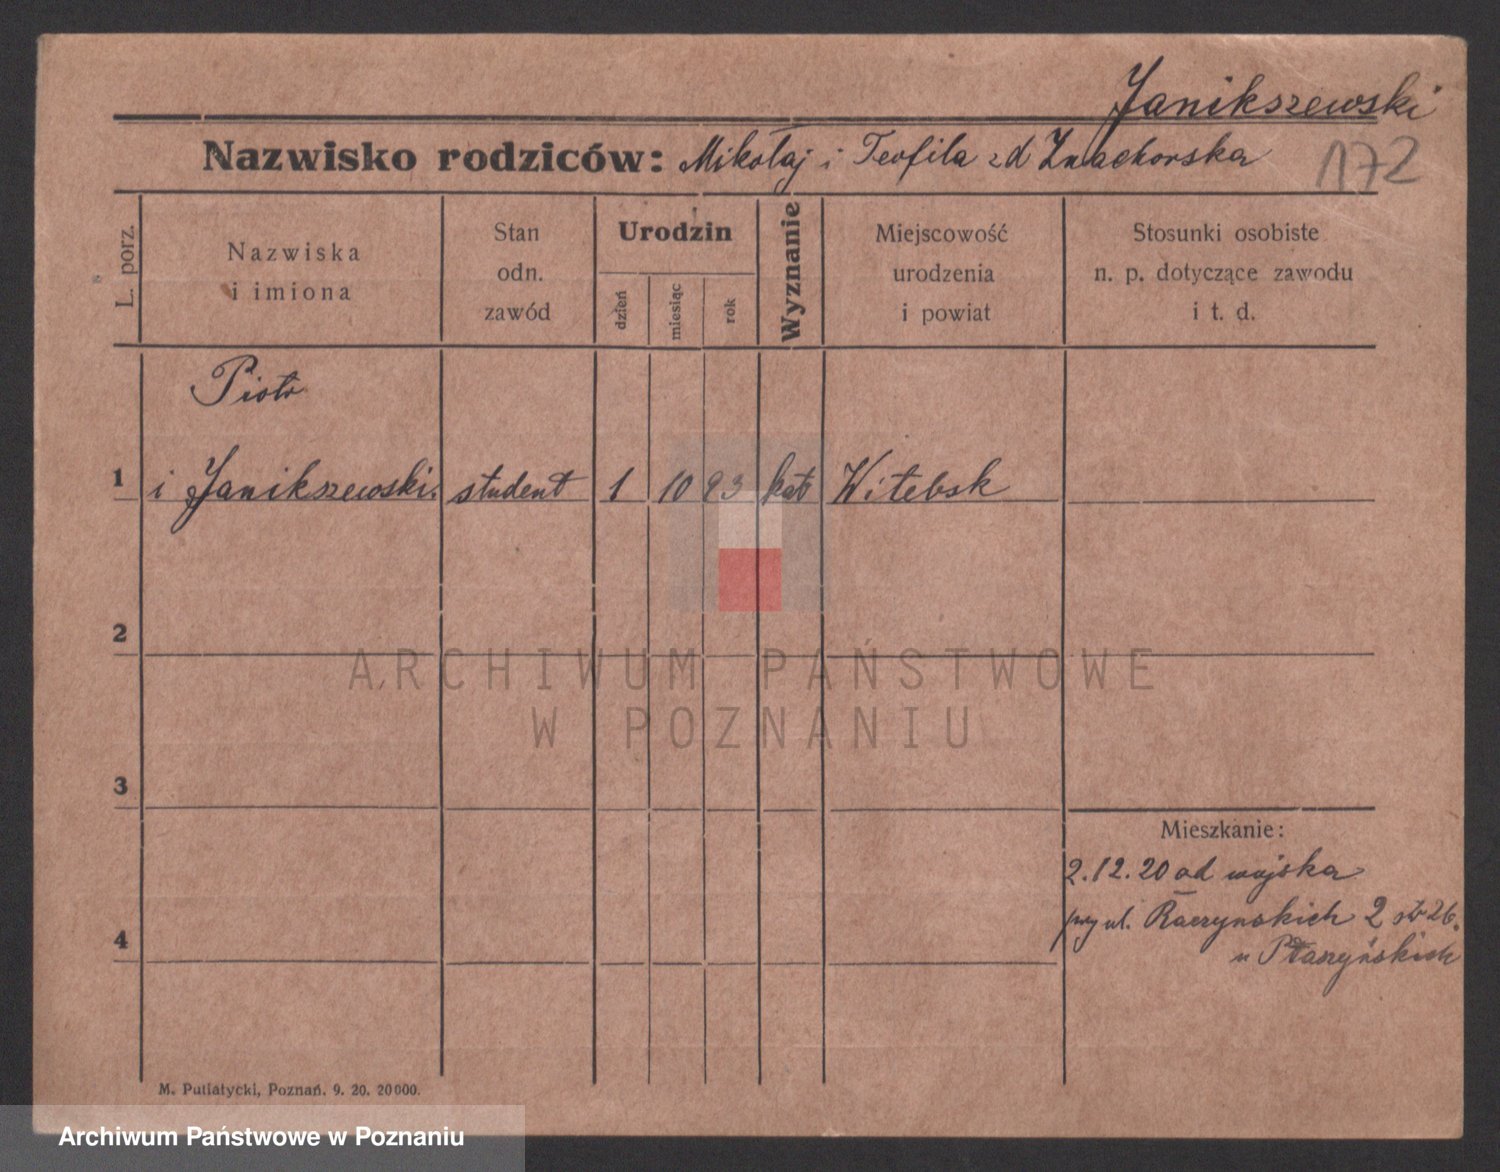 Janikszewski
Nazwisko rodziców: Mikołaj i Teofila zd Znachorska
172
L. porz.
Nazwiska
i imiona
Stan
odn.
zawód
Urodzin
dzień
miesiąc
rok
Wyznanie
Miejscowość
urodzenia
i powiat
Stosunki osobiste
n. p. dotyczące zawodu
i t. d.
Piotr
1 i Janikszewski. student 1 10 93 kat Witebsk
2
ARCHIWUM PAŃSTWOWE
W POZNANIU
3
Mieszkanie:
2.12.20 od wojska
przy ul. Raczynskich 2 26.
u Ptaszyńskich
4
M. Putiatycki, Poznań. 9. 20. 20000.
Archiwum Państwowe w Poznaniu